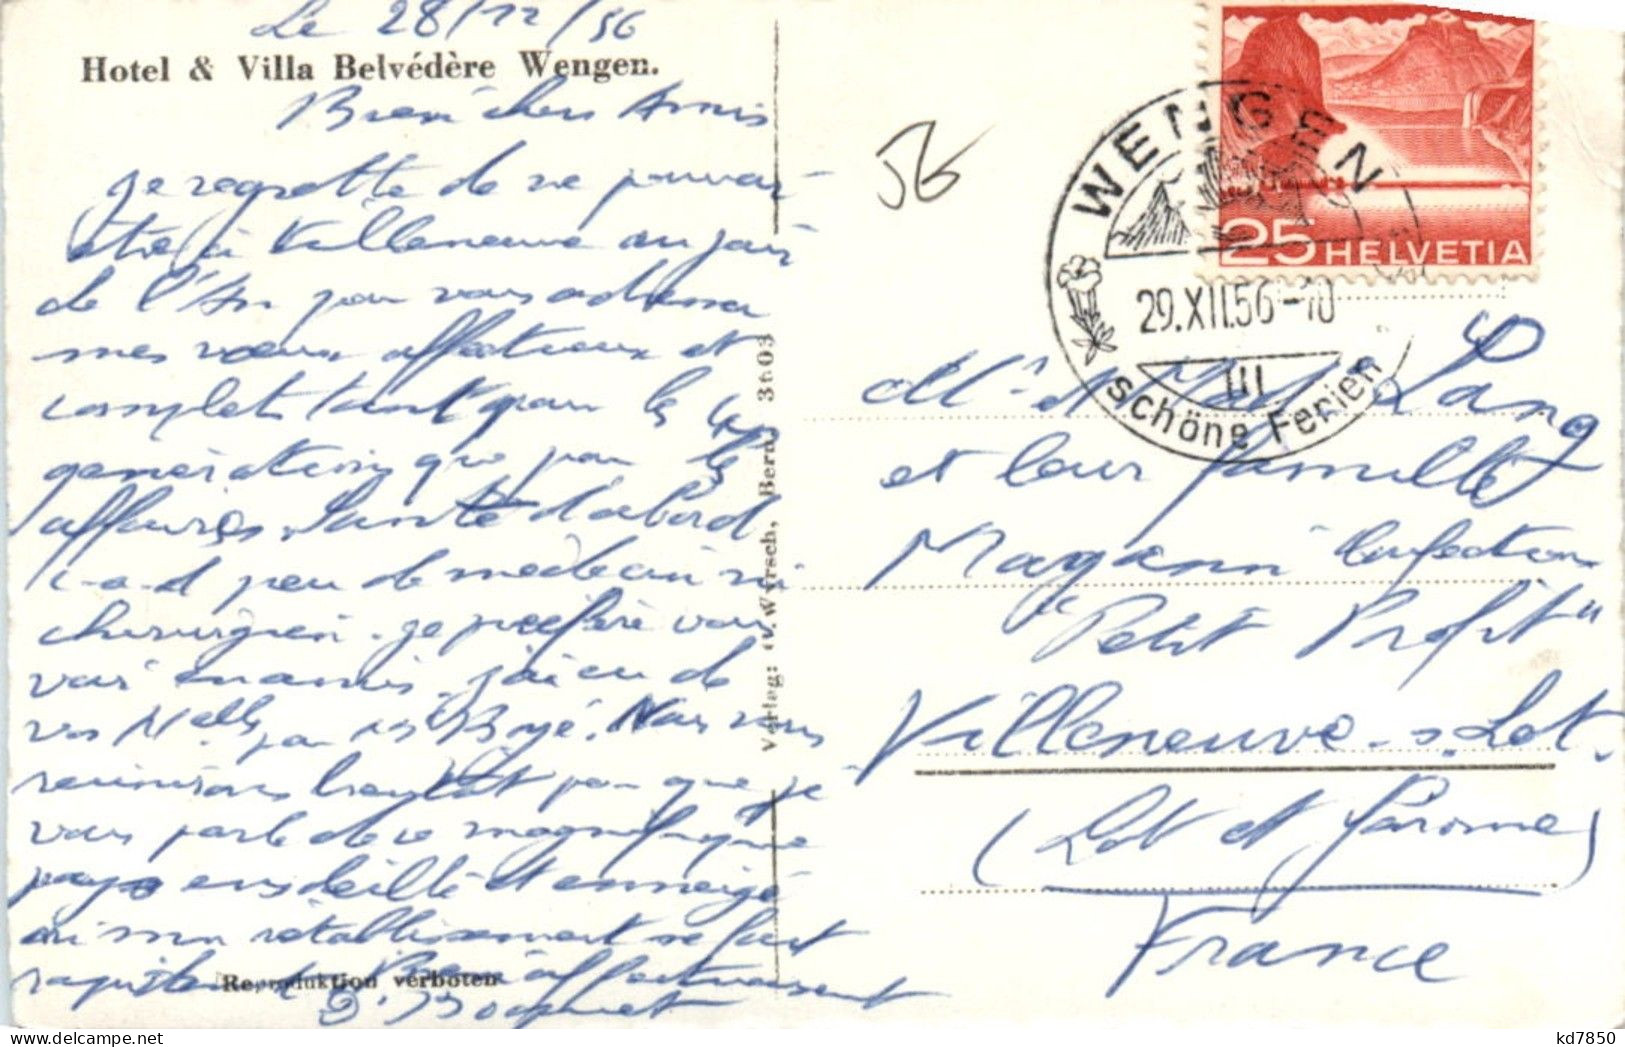 Le 28/12/56
Hotel & Villa Belvédère Wengen.
Bien chers Amis
je regrette de ne pouvoir
être à Villeneuve au jour
de l'An pour vous adresser
mes vœux affectueux et
complets tant pour les 4
générations que pour les
affaires. Santé d'abord
c-a-d peu de médecin ni
chirurgien. je préfère vous
voir en amis. j'ai eu de
vos Nelles par Boyé. Nous vous
réunirons bientôt pour que je
vous parle de ce magnifique
pays ensoleillé et enneigé
où mon rétablissement se fait
rapidement Bien affectueusement
Dr Bocquet
Reproduktion verboten
Verlag: v. Wyrsch, Bern 3603
JE
WENGEN
29.XII.56-10
III
schöne Ferien
25 HELVETIA
Mr et Mme Lang
et leur famille
Magasin Confection
"Petit Profit"
Villeneuve-s.Lot.
(Lot et Garonne)
France
kd7850